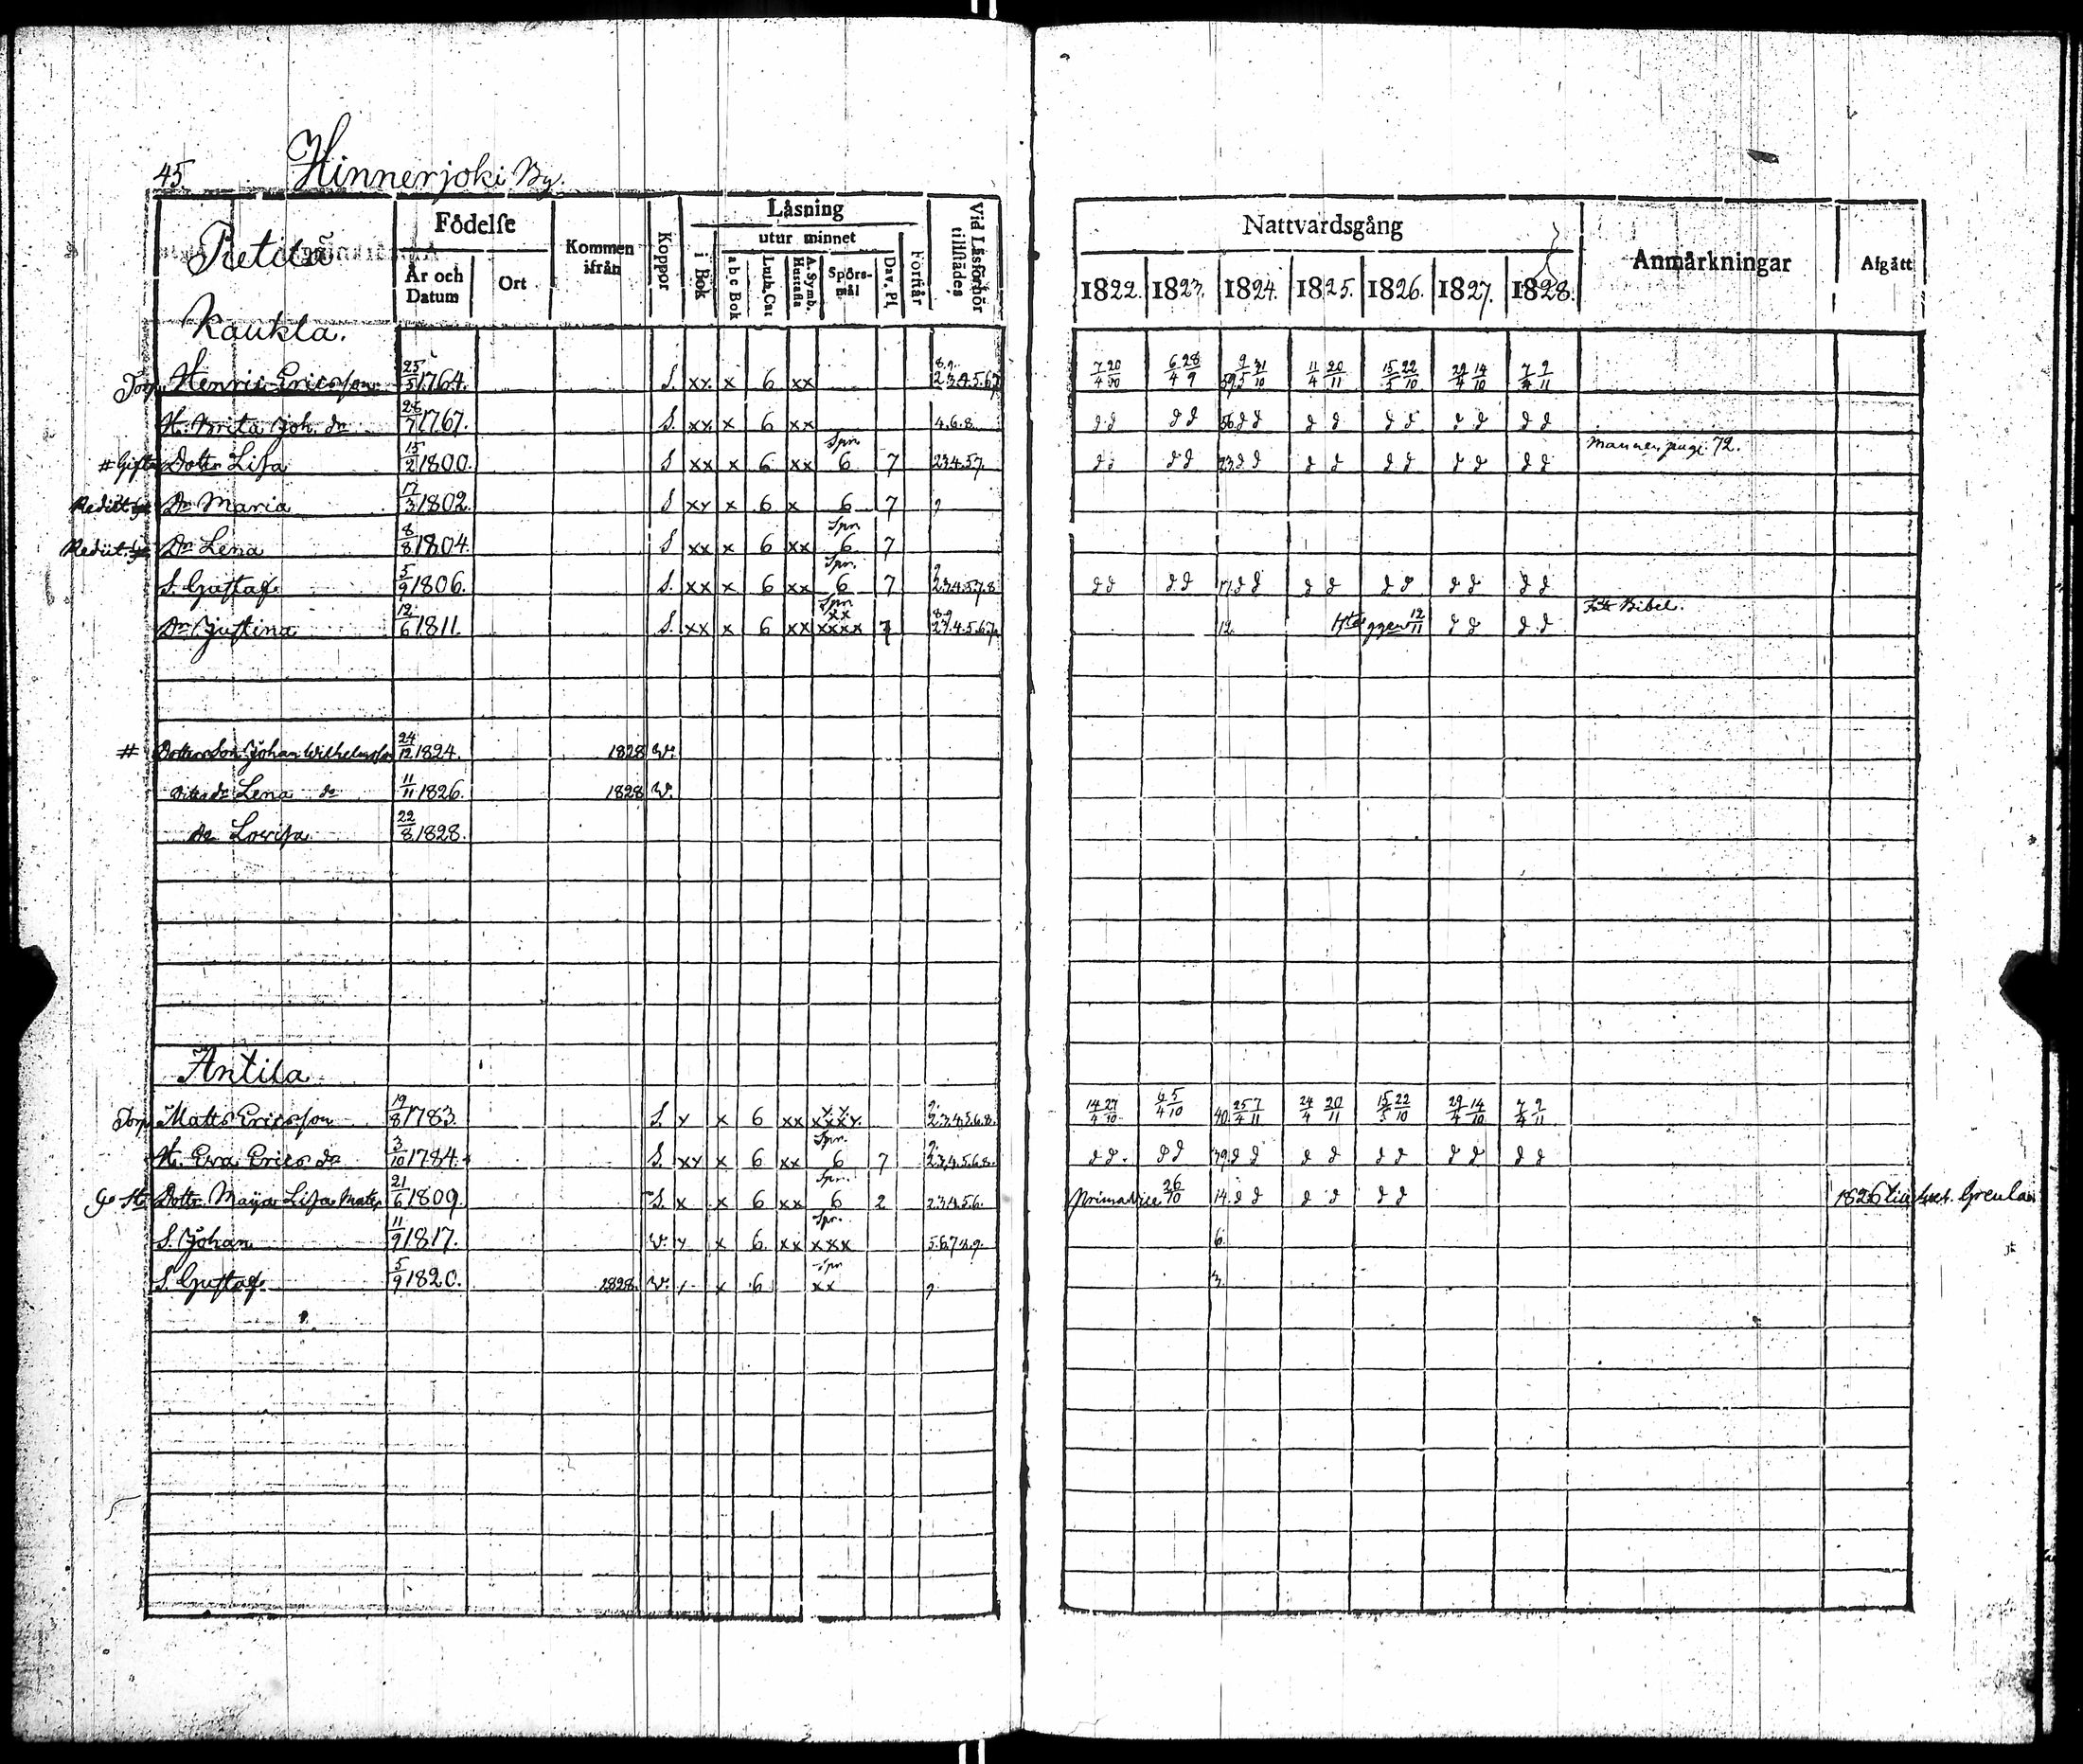 45 Hinnerjoki By.
Födelse Kommen ifrån Koppor Läsning Vid Läsförhör tillstädes
År och Datum Ort i Bok utur minnet Förstår
abc Bok Luth. Cat A. Symb. Hustafla Spörs-mål Dav. Pl.
Nattvardsgång Anmärkningar Afgått
1822. 1823. 1824. 1825. 1826. 1827. 1828.
Pietila
Kaukla.
Torp. Henric Ericsson 25/5 1764. S. xx x 6 xx 8.9. 2.3.4.5.6.7 7/4 20/10 6/4 28/9 59. 9/5 31/10 11/4 20/11 15/5 22/10 29/4 14/10 7/4 9/11
H. Brita Joh. dr 28/7 1767. S. xx x 6 xx 4.6.8. d d d d 56. d d d d d d d d d d
# Gift Dotter Lisa 15/2 1800. S xx x 6 xx Spr. 6 7 2.3.4.5.7. d d d d 23. d d d d d d d d d d Mannen pag. 72.
Dr Maria 17/3 1802. S xx x 6 x 6 7
Dr Lena 8/8 1804. S xx x 6 xx Spr 6 7
S. Gustaf 5/9 1806. S. xx x 6 xx Spr. 6 7 2.3.4.5.7.8 d d d d 17. d d d d d d d d d d
Dr Justina 12/6 1811. S. xx x 6 xx Spr xx xxxx 7 8.9 2.3.4.5.6.7. 12. 12/11 d d d d Bibel.
# Dotterson Johan Wilhelmsson 24/12 1824. 1828 W.
Lena dr 11/11 1826. 1828 W.
Lovisa 22/8 1828.
Antila
Torp. Matts Ericsson 19/8 1783. S. x x 6 xx xx xxxx. 9. 2.3.4.5.6.8. 14/4 27/10 6/4 5/10 40. 25/4 7/11 24/4 20/11 15/5 22/10 29/4 14/10 7/4 9/11
H. Eva Erics dr 3/10 1784. S. xx x 6 xx Spr. 6 7 9. 2.3.4.5.6.8. d d. d d 39. d d d d d d d d d d
Dotter Maija Lisa Mats. 21/6 1809. S. x x 6 xx Spr. 6 2 2.3.4.5.6. prima vice 26/10 14. d d d d d d 1826 till Greula
S. Johan 11/9 1817. W. x x 6. xx Spr. xxx 5.6.7.8.9. 6.
S. Gustaf 5/9 1820. 1828. W. x 6 Spr xx 9 3.